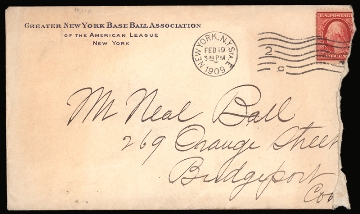 GREATER NEW YORK BASE BALL ASSOCIATION
OF THE AMERICAN LEAGUE
NEW YORK
NEW YORK, N.Y. STA. E
FEB 10
3 PM
1909
2
C
Mr Neal Ball
269 Orange Street
Bridgeport
Con